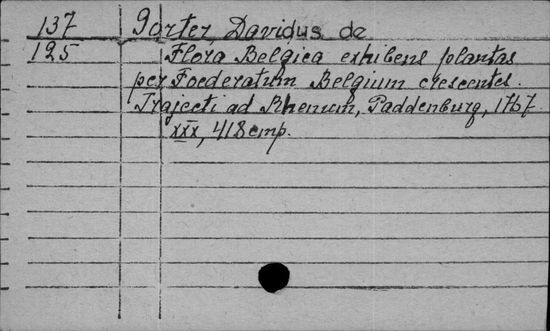 137 Gorter Davidus de
195 Flora Belgica exhibens plantas
per Foederatum Belgium crescentes.
Trajecti ad Rhenum, Paddenburg, 1767.
xxx, 418 стр.